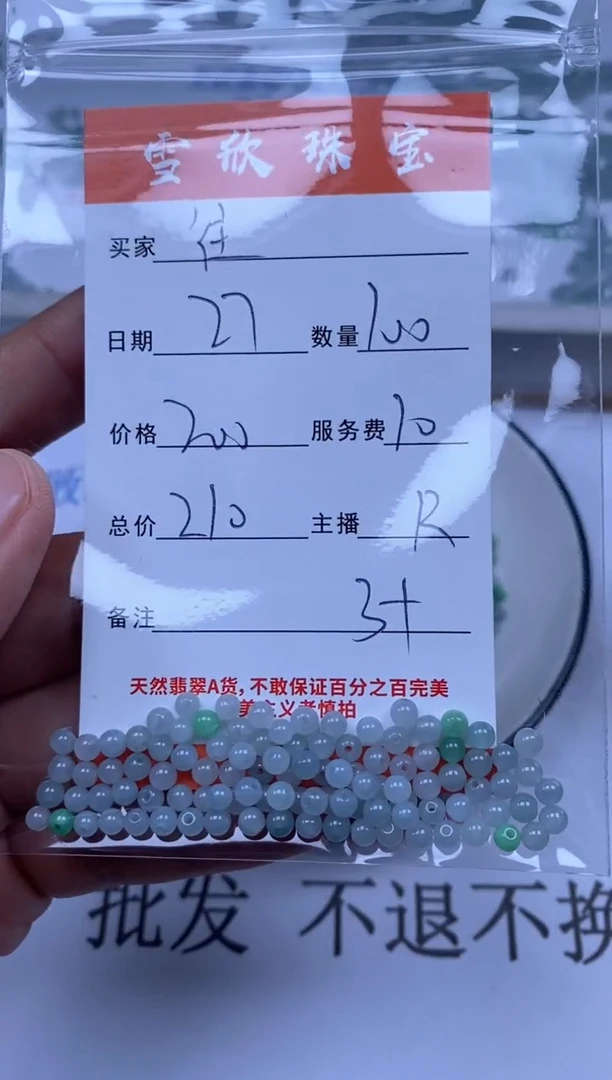 雪欣珠宝
买家
日期 27 数量 100
价格 200 服务费 10
总价 210 主播 R
备注 3十
天然翡翠A货,不敢保证百分之百完美
美主义者慎拍
批发 不退不换